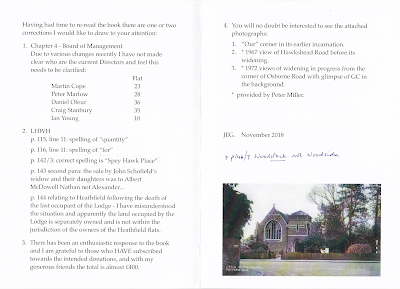 Having had time to re-read the book there are one or two
corrections I would like to draw to your attention:
1. Chapter 4 - Board of Management
Due to various recent changes I have not made
clear who are the current Directors and feel this
needs to be clarified:
Flat
Martin Cope 23
Peter Marlow 28
Daniel Ofour 36
Craig Stanbury 35
Ian Young 10
2. LHWH
p. 115, line 11: spelling of "quantity"
p. 116, line 11: spelling of "for"
p. 142/3: correct spelling is "Spey Hawk Place"
p. 143 second para: the sale by John Schofield's
widow and their daughters was to Albert
McDowell Nathan not Alexander...
p. 144 relating to Heathfield following the death of
the last occupant of the Lodge - I have misunderstood
the situation and apparently the land occupied by the
Lodge is separately owned and is not within the
jurisdiction of the owners of the Heathfield flats.
3. There has been an enthusiastic response to the book
and I am grateful to those who HAVE subscribed
towards the intended donations, and with my
generous friends the total is almost
4. You will no doubt be interested to see the attached
photographs:
1. "Our" corner in its earlier incarnation.
2. * 1967 view of Hawkshead Road before its
widening.
3. * 1972 views of widening in progress from the
corner of Osborne Road with glimpse of GC in
the background.
* provided by Peter Miller.
JEG. November 2018
Woodlock not Woodside